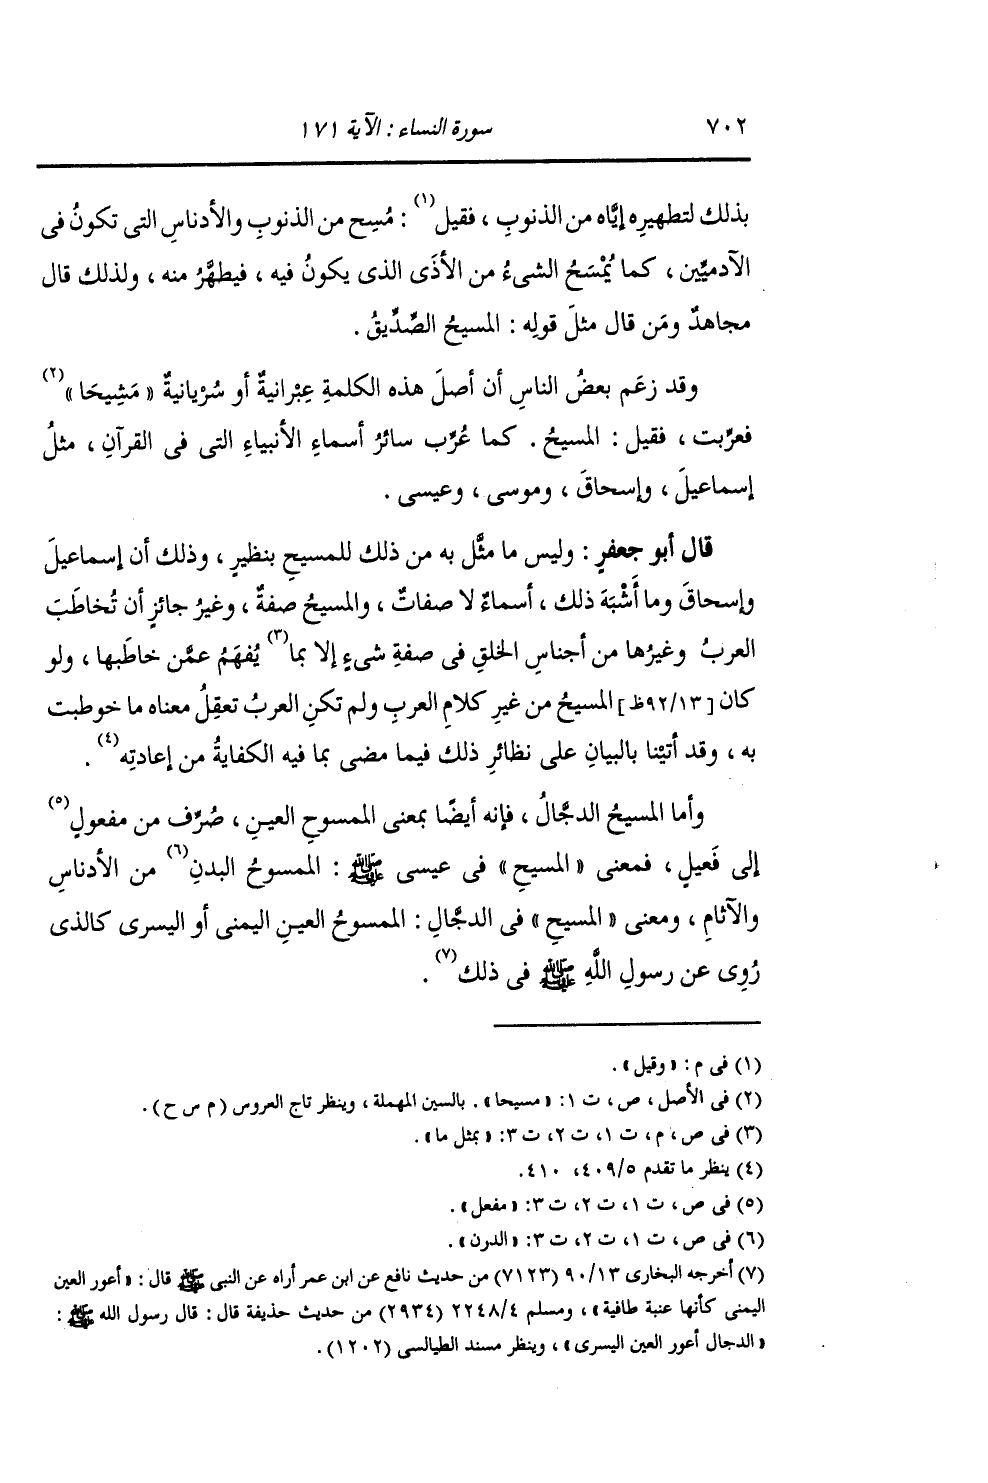 ٧٠٢ سورة النساء : الآية ١٧١
بذلك لتطهيرِه إيَّاه من الذنوبِ ، فقيل(١) : مُسِح من الذنوبِ والأدناسِ التى تكونُ فى
الآدميِّين ، كما يُمْسَحُ الشىءُ من الأذَى الذى يكونُ فيه ، فيطهَّرُ منه ، ولذلك قال
مجاهدٌ ومَن قال مثلَ قولِه : المسيحُ الصِّدِّيقُ .
وقد زعَم بعضُ الناسِ أن أصلَ هذه الكلمةِ عِبْرانيةٌ أو سُرْيانيةٌ « مَشِيحَا »(٢)
فعرِّبت ، فقيل : المسيحُ . كما عُرِّب سائرُ أسماءِ الأنبياءِ التى فى القرآنِ ، مثلُ
إسماعيلَ ، وإسحاقَ ، وموسى ، وعيسى .
قال أبو جعفرٍ : وليس ما مثَّل به من ذلك للمسيحِ بنظيرٍ ، وذلك أن إسماعيلَ
وإسحاقَ وما أَشْبَهَ ذلك ، أسماءٌ لا صفاتٌ ، والمسيحُ صفةٌ ، وغيرُ جائزٍ أن تُخاطَبَ
العربُ وغيرُها من أجناسِ الخلقِ فى صفةِ شىءٍ إلا بما(٣) يُفهَمُ عمَّن خاطَبها ، ولو
كان [٩٢/١٣ظ] المسيحُ من غيرِ كلامِ العربِ ولم تكنِ العربُ تعقِلُ معناه ما خوطبت
به ، وقد أتيْنا بالبيانِ على نظائرِ ذلك فيما مضى بما فيه الكفايةُ من إعادتِه(٤) .
وأما المسيحُ الدجَّالُ ، فإنه أيضًا بمعنى الممسوحِ العينِ ، صُرِّف من مفعولٍ(٥)
إلى فَعيلٍ ، فمعنى « المسيحِ » فى عيسى ﷺ : الممسوحُ البدنِ(٦) من الأدناسِ
والآثامِ ، ومعنى « المسيحِ » فى الدجَّالِ : الممسوحُ العينِ اليمنى أو اليسرى كالذى
رُوِى عن رسولِ اللَّهِ ﷺ فى ذلك(٧) .
(١) فى م : « وقيل » .
(٢) فى الأصل ، ص ، ت ١ : « مسيحا » . بالسين المهملة ، وينظر تاج العروس ( م س ح ) .
(٣) فى ص ، م ، ت ١ ، ت ٢ ، ت ٣ : « بمثل ما » .
(٤) ينظر ما تقدم ٤٠٩/٥ ، ٤١٠ .
(٥) فى ص ، ت ١ ، ت ٢ ، ت ٣ : « مفعل » .
(٦) فى ص ، ت ١ ، ت ٢ ، ت ٣ : « الدرن » .
(٧) أخرجه البخارى ٩٠/١٣ (٧١٢٣) من حديث نافع عن ابن عمر أراه عن النبى ﷺ قال : « أعور العين
اليمنى كأنها عنبة طافية » ، ومسلم ٢٢٤٨/٤ (٢٩٣٤) من حديث حذيفة قال : قال رسول الله ﷺ :
« الدجال أعور العين اليسرى » ، وينظر مسند الطيالسى (١٢٠٢) .